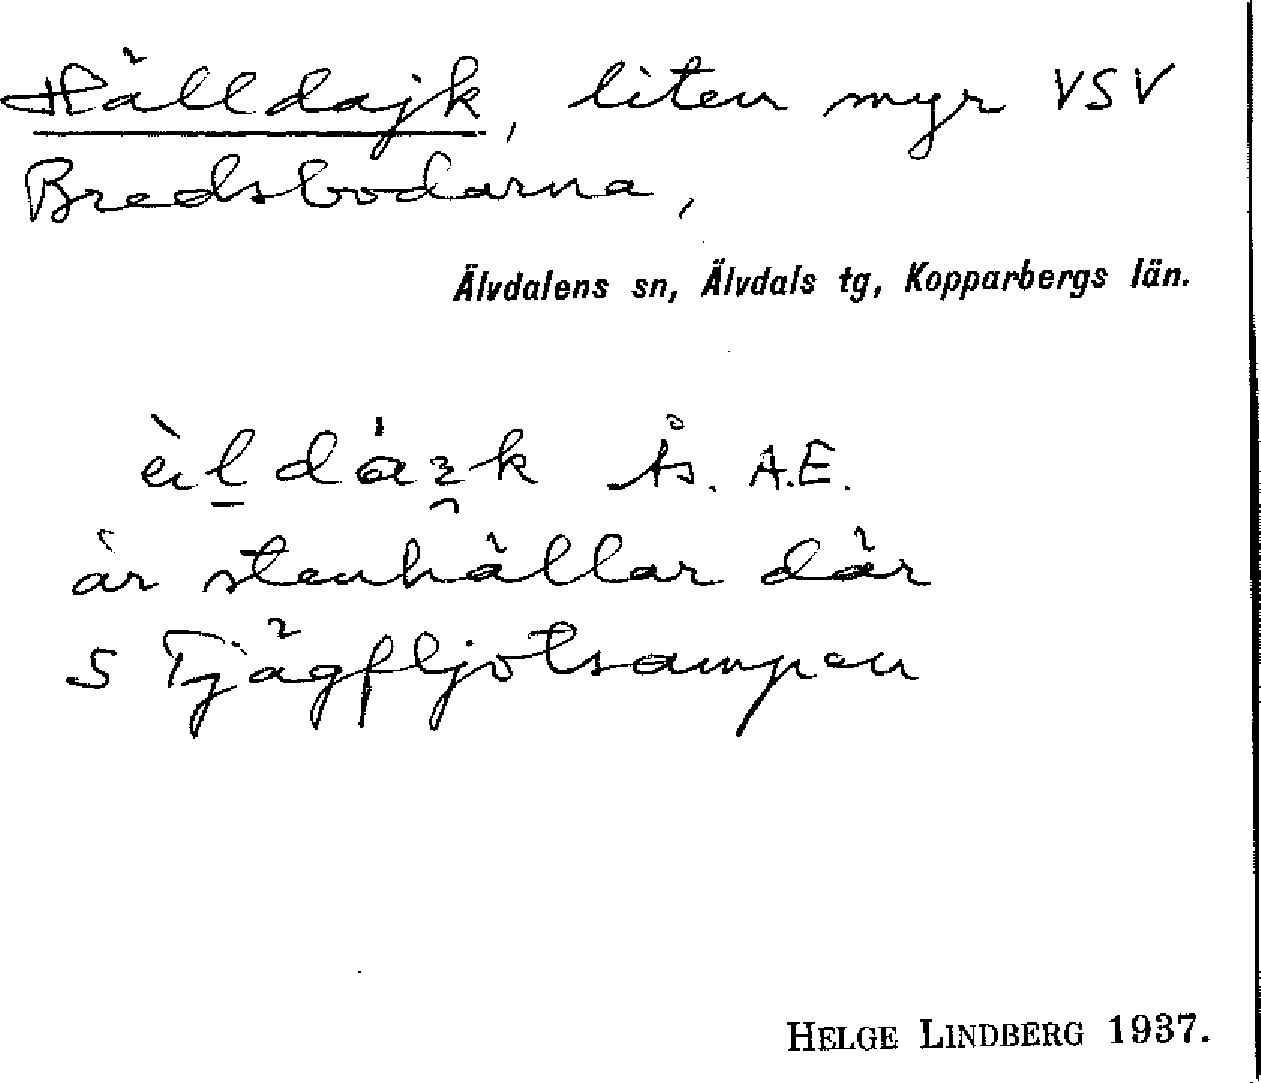 Hälldajk, liten myr VSV
Bredsbodarna,
Älvdalens sn, Älvdals tg, Kopparbergs län.
Ås. A.E.
är stenhällar där
S Tjägfljotsampen
HELGE LINDBERG 1937.